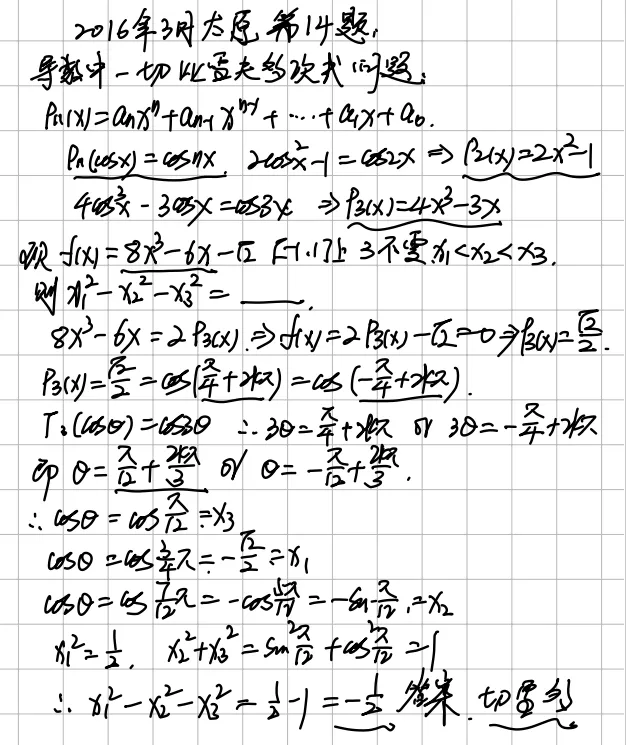 2016年3月太原 第14题.
导数中-切比雪夫多次式问题:
Pn(x)=anxⁿ+an-1xⁿ⁻¹+⋯+a1x+a0.
Pn(cosx)=cosnx 2cos²x-1=cos2x ⇒ P2(x)=2x²-1
4cos³x-3cosx=cos3x ⇒ P3(x)=4x³-3x
f(x)=8x³-6x-√2 [-1,1]上 3个零 x1<x2<x3.
则 x1²-x2²-x3²=____.
8x³-6x=2P3(x) ⇒ f(x)=2P3(x)-√2=0 ⇒ P3(x)=√2/2.
P3(x)=√2/2=cos(π/4+2kπ)=cos(-π/4+2kπ).
T3(cosθ)=cos3θ ∴ 3θ=π/4+2kπ or 3θ=-π/4+2kπ
即 θ=π/12+2kπ/3 or θ=-π/12+2kπ/3.
∴ cosθ=cosπ/12=x3
cosθ=cos3/4π=-√2/2=x1
cosθ=cos7/12π=-cos5π/12=-sinπ/12=x2
x1²=1/2. x2²+x3²=sin²π/12+cos²π/12=1
∴ x1²-x2²-x3²=1/2-1=-1/2 答案. 切雪多